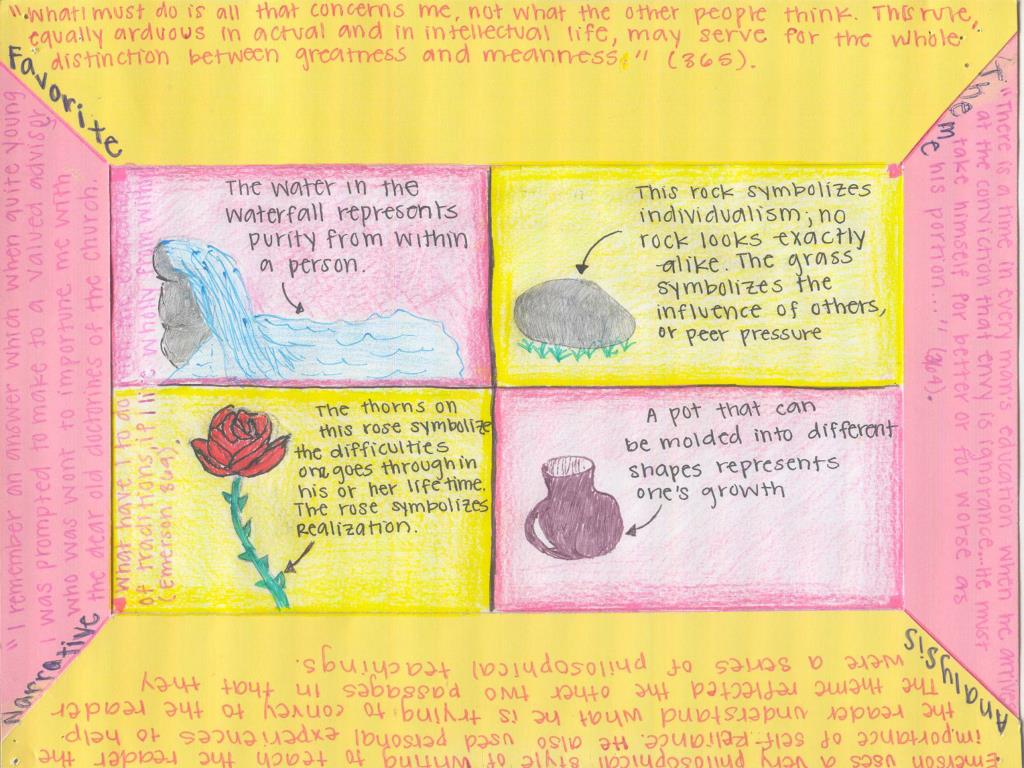 "What I must do is all that concerns me, not what the other people think. This rule,
equally arduous in actual and in intellectual life, may serve for the whole
distinction between greatness and meanness." (365).
Favorite
Theme
"There is a time in every man's education when he
at the conviction that envy is ignorance...He must
take himself for better or for worse as
his portion..." (364).
"I remember an answer which when quite young
I was prompted to make to a valued adviser
who was wont to importune me with
the dear old doctorines of the church.
What have I to do
of traditions, if I live wholly from within
The water in the
waterfall represents
purity from within
a person.
This rock symbolizes
individualism; no
rock looks exactly
alike. The grass
symbolizes the
influence of others,
or peer pressure
The thorns on
this rose symbolize
the difficulties
one goes through in
his or her lifetime.
The rose symbolizes
Realization.
A pot that can
be molded into different
shapes represents
one's growth
Narrative
Analysis
Emerson uses a very philosophical style of writing to teach the reader the
importance of self-reliance. He also used personal experiences to help
the reader understand what he is trying to convey to the reader
The theme reflected the other two passages in that they
were a series of philosophical teachings.